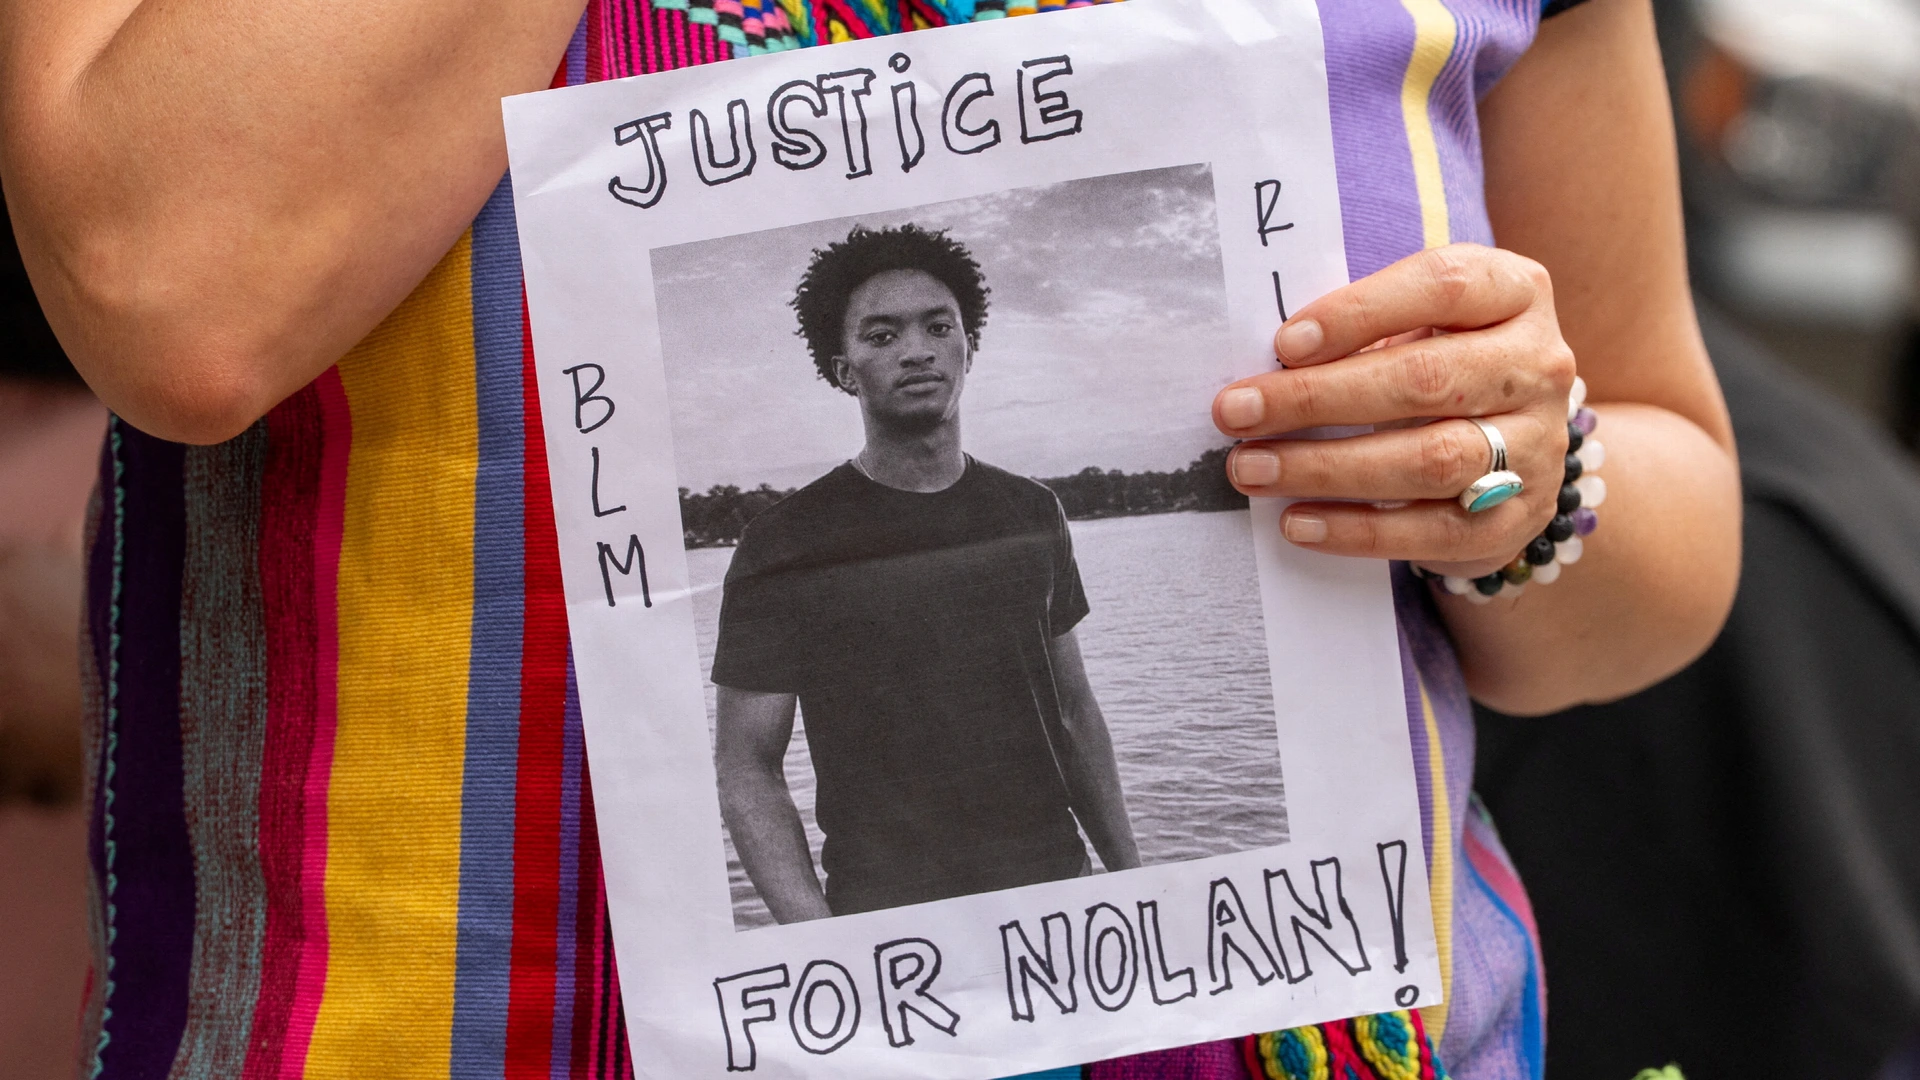 JUSTICE
BLM
FOR NOLAN!